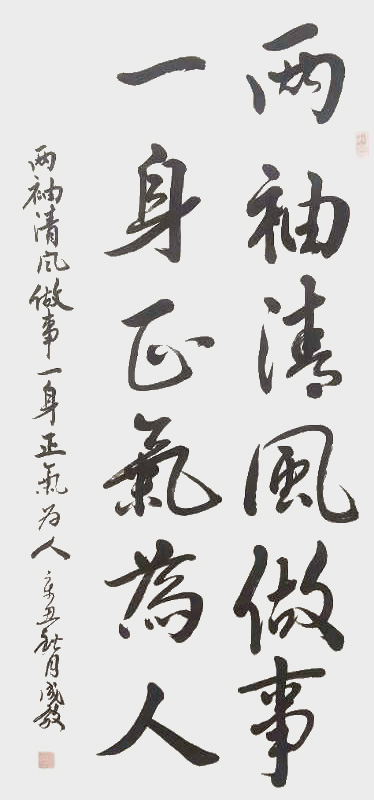 两袖清風做事
一身正氣為人
两袖清风做事一身正氣为人辛丑秋月成教